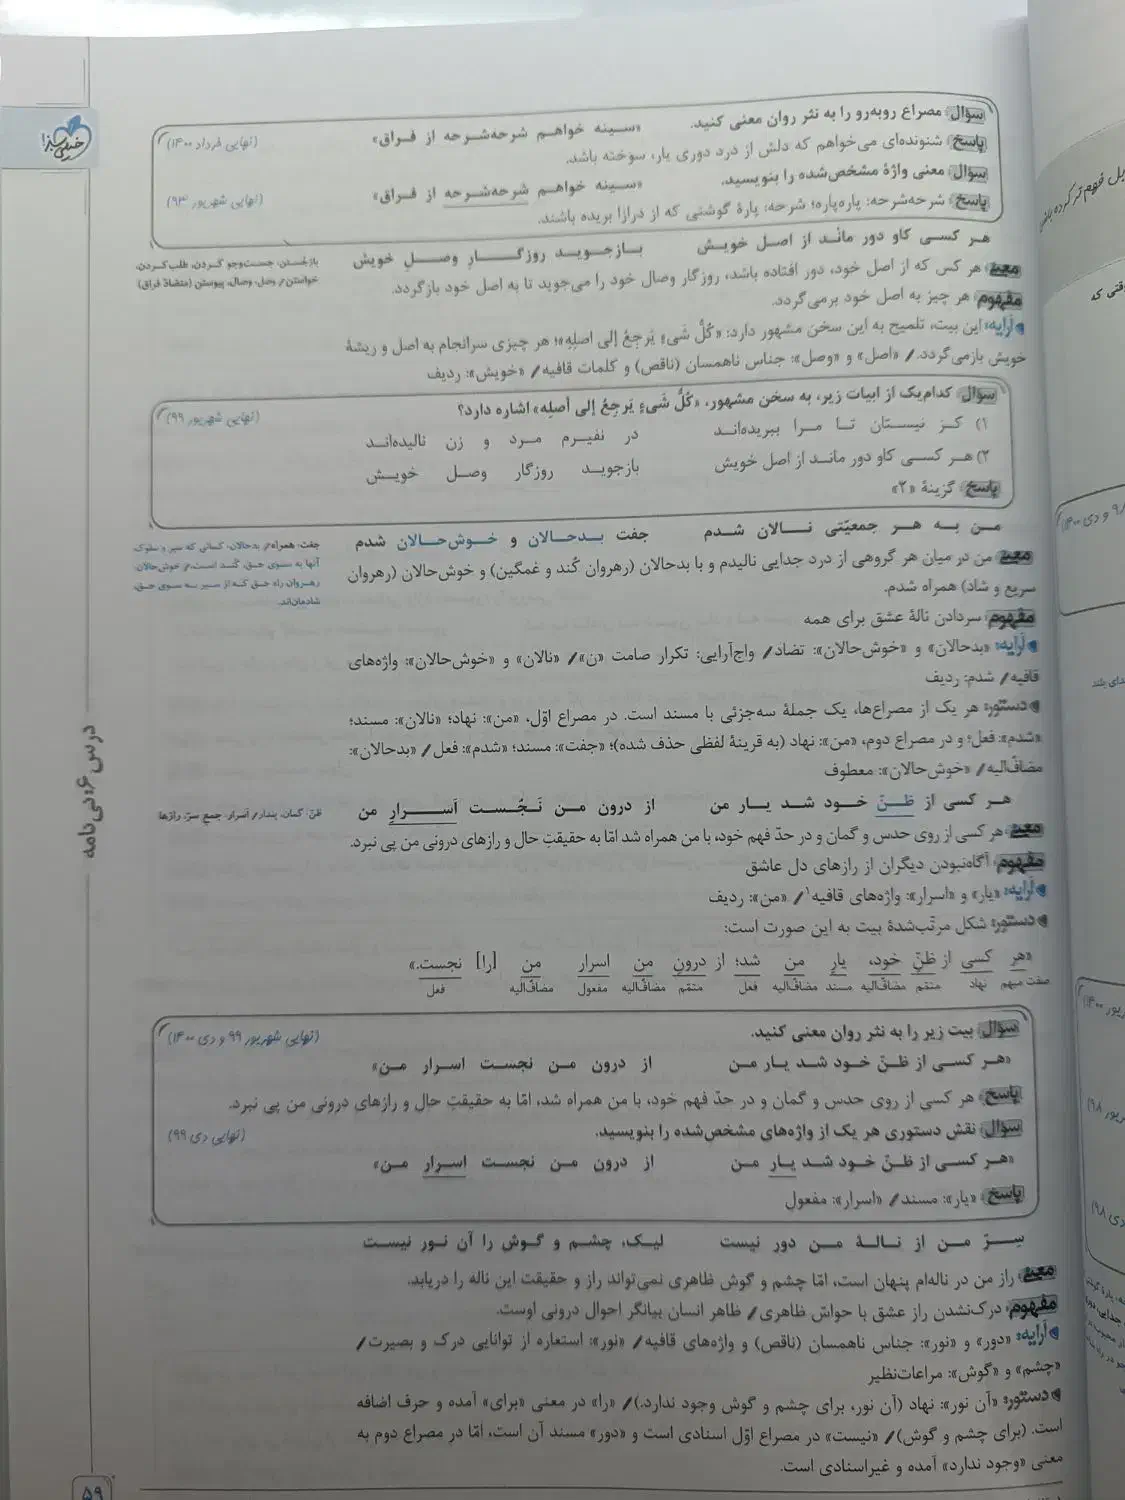 خیلی سبز
سؤال مصراع روبه‌رو را به نثر روان معنی کنید. «سینه خواهم شرحه‌شرحه از فراق» (نهایی خرداد ۱۴۰۰)
پاسخ شنونده‌ای می‌خواهم که دلش از درد دوری یار، سوخته باشد.
سؤال معنی واژهٔ مشخص‌شده را بنویسید. «سینه خواهم شرحه‌شرحه از فراق» (نهایی شهریور ۹۳)
پاسخ شرحه‌شرحه: پاره‌پاره؛ شرحه: پارهٔ گوشتی که از درازا بریده باشند.
هر کسی کاو دور ماند از اصل خویش بازجوید روزگارِ وصلِ خویش
بازجُستن: جست‌وجو کردن، طلب کردن،
خواستن / وصل: وصال، پیوستن (متضاد فراق)
معنی هر کس که از اصل خود، دور افتاده باشد، روزگار وصال خود را می‌جوید تا به اصل خود بازگردد.
مفهوم هر چیز به اصل خود برمی‌گردد.
آرایه: این بیت، تلمیح به این سخن مشهور دارد: «کُلُّ شَیءٍ یَرجِعُ إلی اصلِهِ»؛ هر چیزی سرانجام به اصل و ریشهٔ
خویش بازمی‌گردد. / «اصل» و «وصل»: جناس ناهمسان (ناقص) و کلمات قافیه / «خویش»: ردیف
سؤال کدام‌یک از ابیات زیر، به سخن مشهور، «کُلُّ شَیءٍ یَرجِعُ إلی أصلِه» اشاره دارد؟ (نهایی شهریور ۹۹)
۱) کز نیستان تا مرا ببریده‌اند در نفیرم مرد و زن نالیده‌اند
۲) هر کسی کاو دور ماند از اصل خویش بازجوید روزگار وصل خویش
پاسخ گزینهٔ «۲»
من به هر جمعیّتی نالان شدم جفت بدحالان و خوش‌حالان شدم
جفت: همراه / بدحالان: کسانی که سیر و سلوک
آنها به سوی حق، کُند است. / خوش‌حالان:
رهروان راه حق که از سیر به سوی حق،
شادمان‌اند.
معنی من در میان هر گروهی از درد جدایی نالیدم و با بدحالان (رهروان کُند و غمگین) و خوش‌حالان (رهروان
سریع و شاد) همراه شدم.
مفهوم سردادن نالهٔ عشق برای همه
آرایه: «بدحالان» و «خوش‌حالان»: تضاد / واج‌آرایی: تکرار صامت «ن» / «نالان» و «خوش‌حالان»: واژه‌های
قافیه / شدم: ردیف
دستور: هر یک از مصراع‌ها، یک جملهٔ سه‌جزئی با مسند است. در مصراع اوّل، «من»: نهاد؛ «نالان»: مسند؛
«شدم»: فعل؛ و در مصراع دوم، «من»: نهاد (به قرینهٔ لفظی حذف شده)؛ «جفت»: مسند؛ «شدم»: فعل / «بدحالان»:
مضافٌ‌الیه / «خوش‌حالان»: معطوف
هر کسی از ظنّ خود شد یار من از درون من نَجُست اَسرارِ من
ظنّ: گمان، پندار / اسرار: جمعِ سرّ، رازها
معنی هر کسی از روی حدس و گمان و در حدّ فهم خود، با من همراه شد امّا به حقیقتِ حال و رازهای درونی من پی نبرد.
مفهوم آگاه‌نبودن دیگران از رازهای دل عاشق
آرایه: «یار» و «اسرار»: واژه‌های قافیه۱ / «من»: ردیف
دستور: شکل مرتّب‌شدهٔ بیت به این صورت است:
«هر کسی از ظنّ خود، یارِ من شد؛ از درونِ من اسرار من [را] نجست.»
صفت مبهم نهاد متمّم مضافٌ‌الیه مسند مضافٌ‌الیه فعل متمّم مضافٌ‌الیه مفعول مضافٌ‌الیه فعل
سؤال بیت زیر را به نثر روان معنی کنید. (نهایی شهریور ۹۹ و دی ۱۴۰۰)
«هر کسی از ظنّ خود شد یار من از درون من نجست اسرار من»
پاسخ هر کسی از روی حدس و گمان و در حدّ فهم خود، با من همراه شد، امّا به حقیقتِ حال و رازهای درونی من پی نبرد.
سؤال نقش دستوری هر یک از واژه‌های مشخص‌شده را بنویسید. (نهایی دی ۹۹)
«هر کسی از ظنّ خود شد یار من از درون من نجست اسرار من»
پاسخ «یار»: مسند / «اسرار»: مفعول
سِرّ من از نالهٔ من دور نیست لیک، چشم و گوش را آن نور نیست
معنی راز من در ناله‌ام پنهان است، امّا چشم و گوش ظاهری نمی‌تواند راز و حقیقت این ناله را دریابد.
مفهوم: درک‌نشدن راز عشق با حواسّ ظاهری / ظاهر انسان بیانگر احوال درونی اوست.
آرایه: «دور» و «نور»: جناس ناهمسان (ناقص) و واژه‌های قافیه / «نور»: استعاره از توانایی درک و بصیرت /
«چشم» و «گوش»: مراعات‌نظیر
دستور: «آن نور»: نهاد (آن نور، برای چشم و گوش وجود ندارد.) / «را» در معنی «برای» آمده و حرف اضافه
است. (برای چشم و گوش) / «نیست» در مصراع اوّل اسنادی است و «دور» مسند آن است، امّا در مصراع دوم به
معنی «وجود ندارد» آمده و غیراسنادی است.
درس ۶: نی‌نامه
۵۹